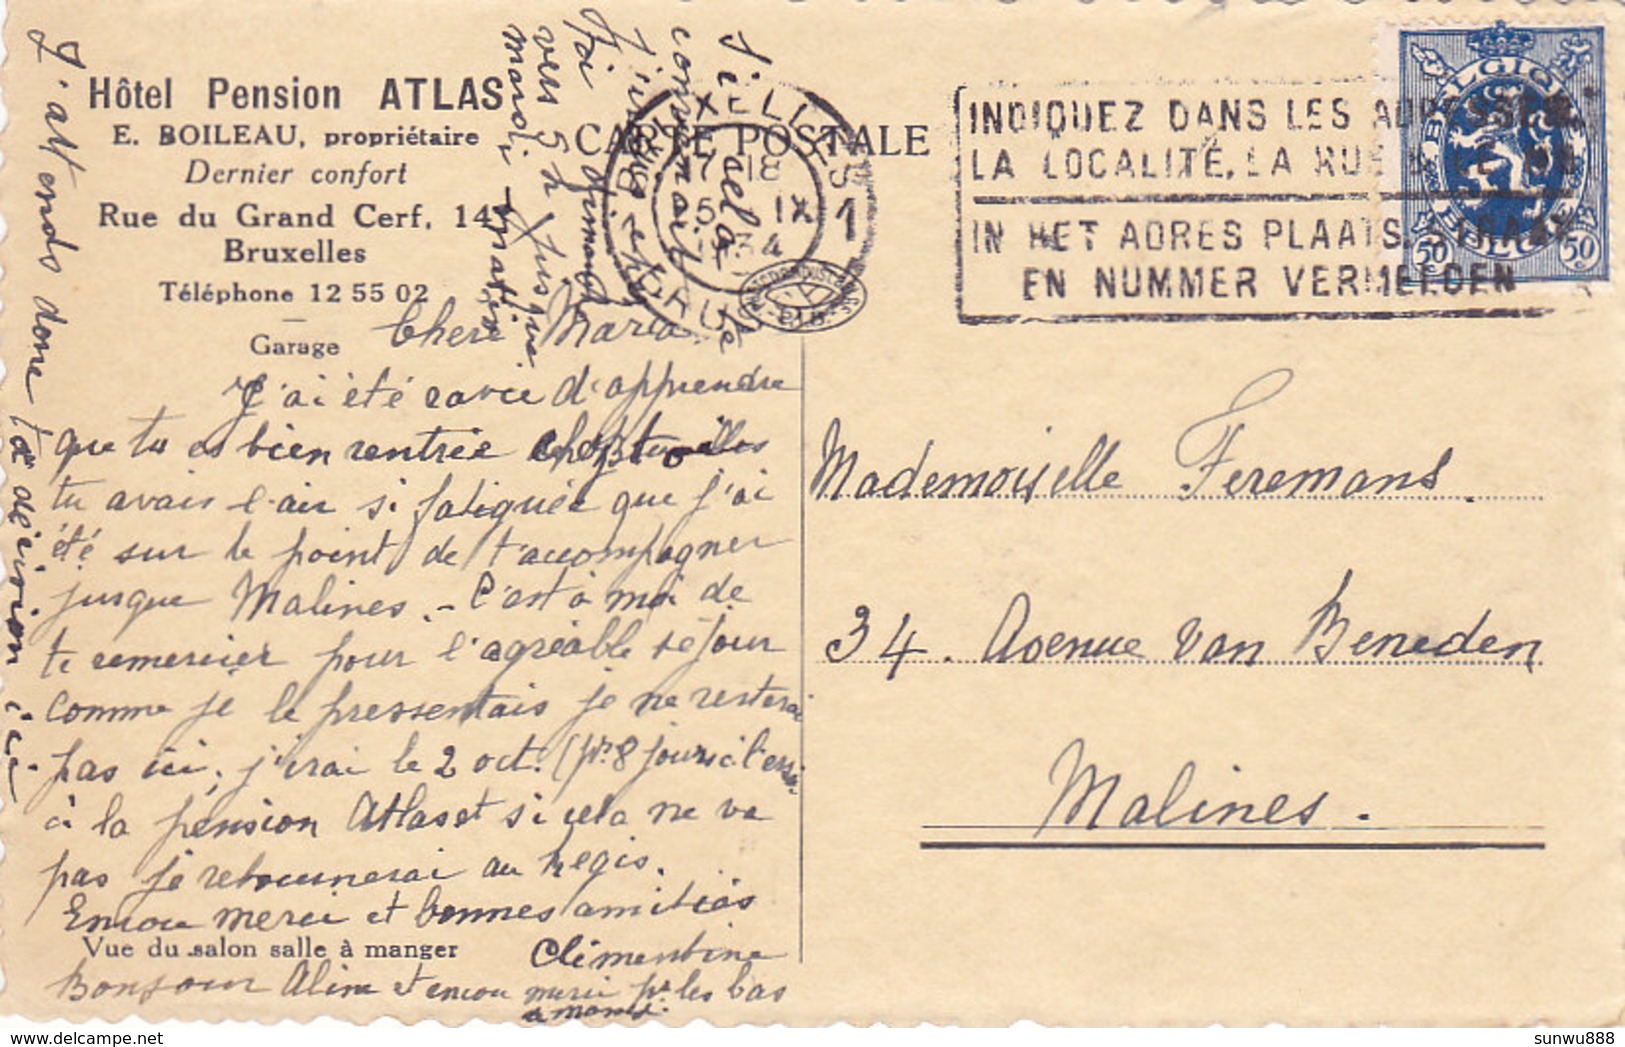 Hôtel Pension ATLAS
E. BOILEAU, propriétaire
Dernier confort
Rue du Grand Cerf, 14
Bruxelles
Téléphone 12 55 02
Garage
CARTE POSTALE
IXELLES 1
18
IX
34
INDIQUEZ DANS LES ADRESSES
LA LOCALITÉ, LA RUE
IN HET ADRES PLAATS, STRAAT
EN NUMMER VERMELDEN
BELGIQUE
BELGIË
50 50
Chere Maria
J'ai été ravie d'apprendre
que tu es bien rentrée
tu avais l'air si fatiguée que j'ai
été sur le point de t'accompagner
jusque Malines. - C'est à moi de
te remercier pour l'agréable séjour
comme je le pressentais je ne resterai
pas ici, j'irai le 2 oct. (pr 8 jours à l'essai
à la pension Atlas et si cela ne va
pas je retournerai au Regis.
Encore merci et bonnes amitiés
Vue du salon salle à manger
Clémentine
Bonjour Aline et encore merci pr les bas
J'attends donc ta décision ici
si
convenait
cela
J'ai
vers 5 h
mardi - matin
Mademoiselle Feremans.
34. Avenue Van Beneden
Malines.
sunwu888